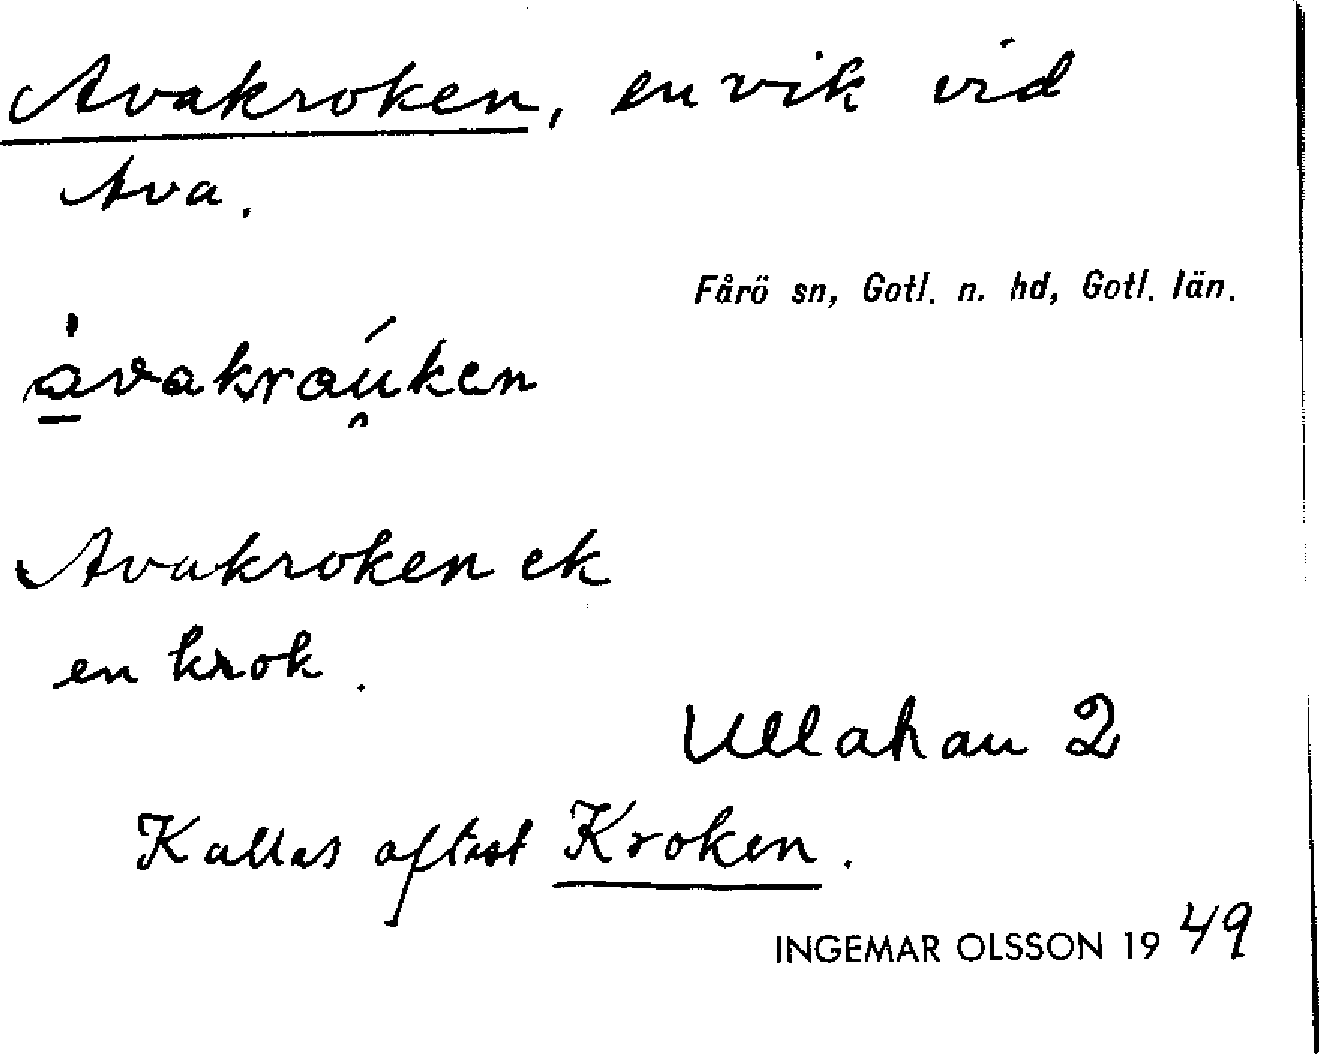 Avakroken, en vik vid
Ava.
Fårö sn, Gotl. n. hd, Gotl. län.
a̱̍vakraú̯ken
Avakroken ek
en krok.
Ullahau 2
Kallas oftast Kroken.
INGEMAR OLSSON 1949